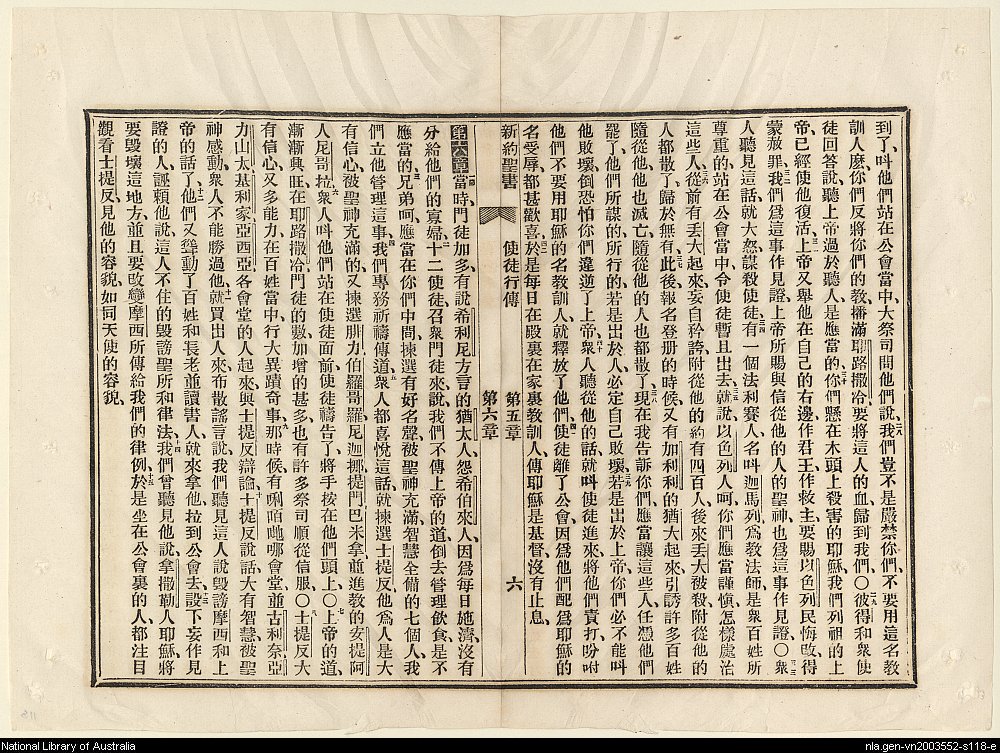 到了、叫他們站在公會當中、大祭司問他們說、二八我們豈不是嚴禁你們、不要用這名教
訓人麼、你們反將你們的教播滿耶路撒冷、要將這人的血、歸到我們〇二九彼得和衆使
徒回答說、聽上帝過於聽人、是應當的、三十你們懸在木頭上殺害的耶穌、我們列祖的上
帝、已經使他復活、三一上帝又舉他在自己的右邊、作君王、作救主、要賜以色列民悔改、得
蒙赦罪、三二我們爲這事作見證、上帝所賜與信從他的人的聖神、也爲這事作見證、〇三三衆
人聽見這話、就大怒、謀殺使徒、三四有一個法利賽人、名叫迦馬列、爲教法師、是衆百姓所
尊重的、站在公會當中、令使徒暫且出去、三五就說、以色列人呵、你們應當謹愼、怎樣處治
這些人、三六從前有丟大起來、妄自矜誇、附從他的約有四百人、後來丟大被殺、附從他的
人都散了、歸於無有、三七此後報名登册的時候、又有加利利的猶大起來、引誘許多百姓
隨從他、他也滅亡、隨從他的人也都散了、三八現在我告訴你們、應當讓這些人、任憑他們
罷了、他們所謀的所行的、若是出於人、必定自己敗壞、三九若是出於上帝、你們必不能叫
他敗壞、倒恐怕你們違逆了上帝、四十衆人聽從他的話、就叫使徒進來、將他們責打、吩咐
他們不要用耶穌的名教訓人、就釋放了他們、四一使徒離了公會、因爲他們配爲耶穌的
名受辱、都甚歡喜、四二於是每日在殿裏在家裏教訓人、傳耶穌是基督、沒有止息、
新約聖書 使徒行傳 第五章 第六章 六
第六章一當時門徒加多、有說希利尼方言的猶太人、怨希伯來人、因爲每日施濟、沒有
分給他們的寡婦、二十二使徒召衆門徒來、說、我們不傳上帝的道、倒去管理飲食、是不
應當的、三兄弟呵、應當在你們中間、揀選有好名聲、被聖神充滿、智慧全備的七個人、我
們立他管理這事、四我們專務祈禱傳道、五衆人都喜悅這話、就揀選士提反、他爲人是大
有信心、被聖神充滿的、又揀選腓力、伯羅哥羅、尼迦挪、提門、巴米拿、並進教的安提阿
人尼哥拉、六衆人叫他們站在使徒面前、使徒禱告了、將手按在他們頭上〇七上帝的道、
漸漸興旺、在耶路撒冷門徒的數、加增的甚多、也有許多祭司順從信服、〇八士提反大
有信心、又多能力、在百姓當中行大異蹟奇事、九那時候有唎咟呬哪會堂、並古利奈、亞
力山太、基利家、亞西亞各會堂的人起來、與士提反辯論、十士提反說話、大有智慧、被聖
神感動、衆人不能勝過他、十一就買出人來布散謠言說、我們聽見這人說毀謗摩西和上
帝的話了、十二他們又聳動了百姓、和長老、並讀書人、就來拿他、拉到公會去、十三設下妄作見
證的人、誣賴他說、這人不住的毀謗聖所和律法、十四我們曾聽見他說、拿撒勒人耶穌、將
要毀壞這地方、並且要改變摩西所傳給我們的律例、十五於是坐在公會裏的人、都注目
觀看士提反、見他的容貌、如同天使的容貌、
National Library of Australia
nla.gen-vn2003552-s118-e